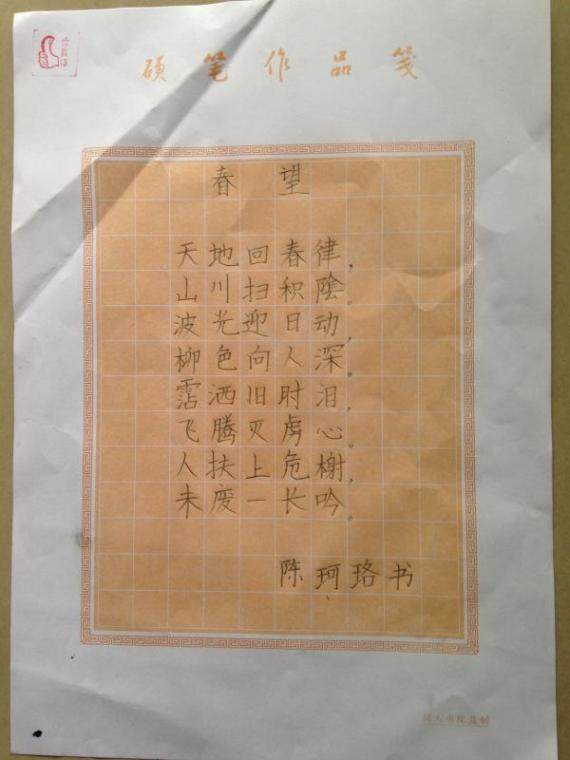 硬笔作品笺
春望
天地回春律，
山川扫积阴。
波光迎日动，
柳色向人深。
霑洒旧时泪，
飞腾灭虏心。
人扶上危榭，
未废一长吟。
陈珂珞书